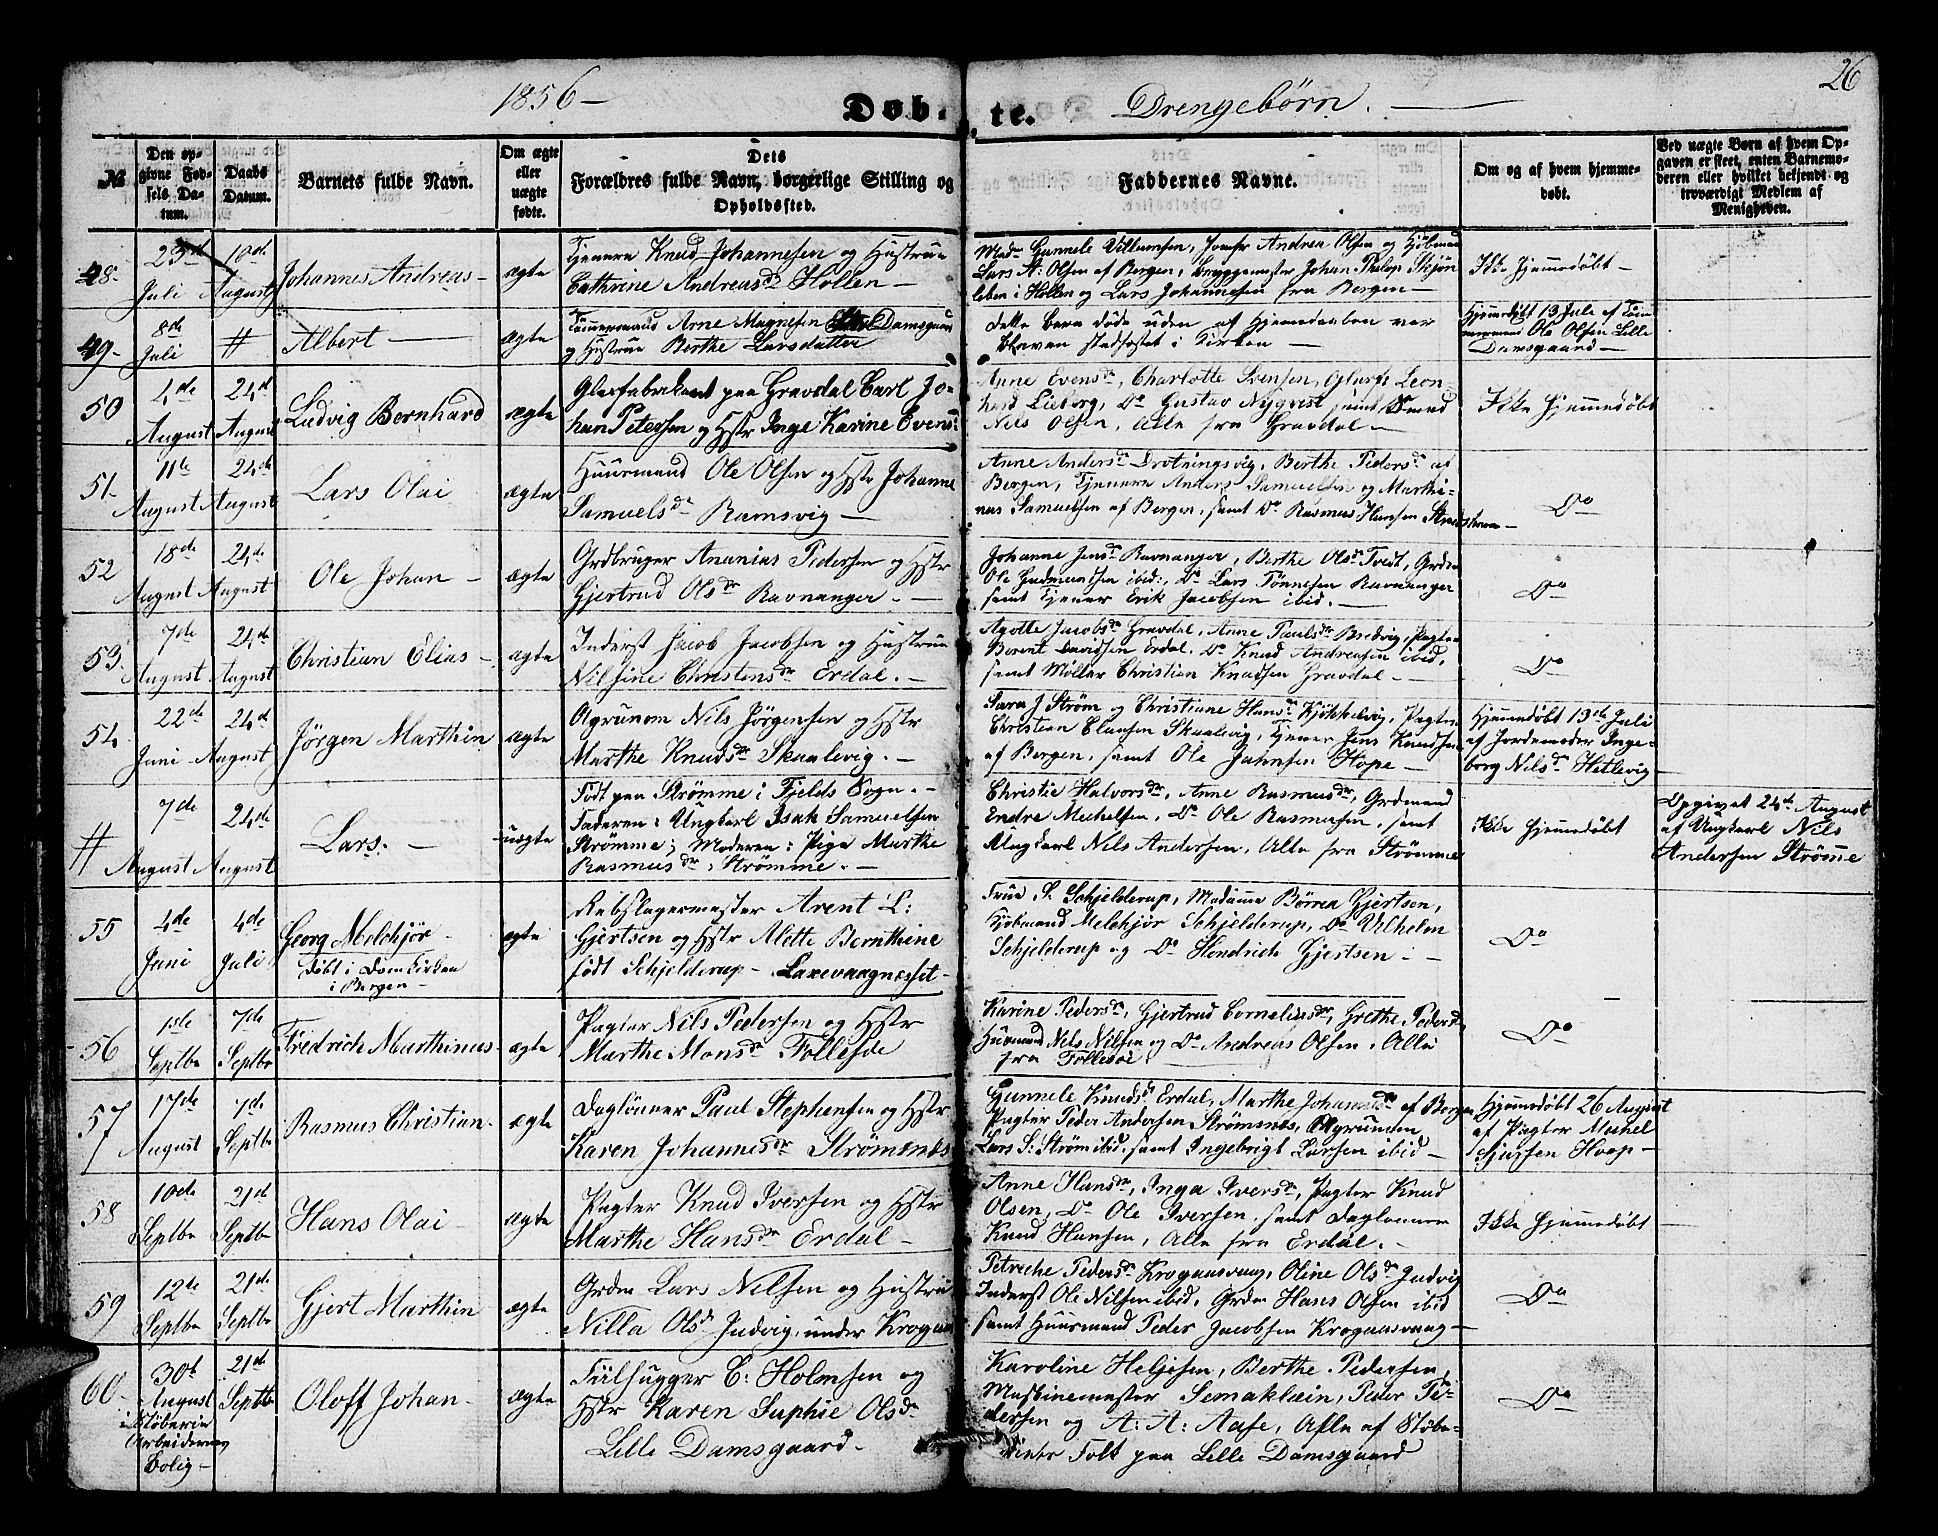 1856 — Døb-
te. Drengebørn. —
26
№
Den op-
givne Fød-
sels Da-
tum.
Daabs
Datum.
Barnets fulde Navn.
Om ægte
eller
uægte
fødte.
Dets
Forældres fulde Navn, borgerlige Stilling og
Opholdssted.
Faddernes Navne.
Om og af hvem hjemme-
døbt.
Ved uægte Børn af hvem Op-
gaven er skeet, enten Barnemo-
deren eller hvilket bekjendt og
troværdigt Medlem af
Menigheden.
48.
23de
Juli
10de
August
Johannes Andreas —
ægte
Tjenere Knud Johannesen og Hustrue
Cathrine Andreasdr Hollen —
Madm Gunnele Villumsen, Jomfr Andrea Olsen og Kjøbmand
Lars A: Olsen af Bergen, Bryggemester Johan Philip Skjøn
leben i Hollen og Lars Johannesen fra Bergen —
Ikke Hjemmedøbt —
49 —
8de
Juli
#
Albert —
ægte
Tømmermand Arne Magnesen Damsgaard
og Hustrue Berthe Larsdatter
Dette Barn døde uden at Hjemmedaaben var
bleven stadfæstet i Kirken —
Hjemmedøbt 19 Jule af Tøm
mermand Ole Olsen Lille
Damsgaard —
50
4de
August
24d
August
Ludvig Bernhard
ægte
Glasfabrikant paa Gravdal Carl Jo-
han Petersen og Hstr Inge Karine Evensd:
Anne Evensdr, Charlotte Svensen, Glasf: Leon-
hard Lieberg, Do Gustav Nyqvist samt Smed
Nils Olsen, Alle fra Gravdal —
Ikke Hjemmedøbt
51
11te
August
24d
August
Lars Olai
ægte
Huusmand Ole Olsen og Hstr Johanne
Samuelsdr Ramsvig —
Anne Andersdr Drotningsvig, Berthe Pedersdr af
Bergen, Tjenere Anders Samuelsen og Marthi-
nus Samuelsen af Bergen, samt Do Rasmus Hansen Strudshavn —
Do
52
18de
August
24de
August
Ole Johan —
ægte
Grdbruger Ananias Pedersen og Hstr
Gjertrud Olsdr Ravnanger. —
Johanne Jensdr Ravnanger, Berthe Olsdr Tvedt, Grdm
Ole Gudmundsen ibid:, Do Lars Tønnesen Ravnanger
samt Tjener Erik Jacobsen ibid. —
Do
53.
7de
August
24de
August
Christian Elias —
ægte
Inderst Jacob Jacobsen og Hustrue
Nilsine Christensdr Erdal. —
Agotte Jacobsdr Gravdal, Anne Paulsdr Bredvig, Pagter
Berent Davidsen Erdal, Do Knud Andreasen ibid,
samt Møller Christian Knudsen Gravdal —
Do
54
22de
Juni
24d
August
Jørgen Marthin
ægte
Nils Jørgensen og Hstr
Marthe Knudsdr Skaalevig. —
Sara J Strøm og Christiane Hansdr Kjøkkelvig, Pagter
Christian Clausen Skaalevig, Tjener Jens Knudsen
af Bergen, samt Ole Johnsen Hope —
Hjemmedøbt 13de Juli
af Jordemoder Inge-
borg Nilsdr Hetlevig —
#
7de
August
24de
August
Lars. —
uægte
Født paa Strømme i Fjelds Sogn. —
Faderen: Ungkarl Isak Samuelsen
Strømme; Moderen: Pige Marthe
Rasmusdr. Strømme. —
Christie Halvorsdr, Anne Rasmusdr, Grdmand
Endre Mechelsen, Do Ole Rasmussen, samt
Ungkarl Nils Andersen, Alle fra Strømme
Ikke Hjemmedøbt
Opgivet 24de August
af Ungkarl Nils
Andersen Strømme
55
4de
Juni
4de
Juli
Georg Melchjør —
døbt i Domkirken
i Bergen —
ægte
Rebslagermester Arent L:
Gjertsen og Hstr Alette Bernthine
født Schjelderup — Laxevaagnæsset —
Frue S. Schjelderup, Madamme Børrea Gjertsen,
Kjøbmand Melchjør Schjelderup, Do Vilhelm
Schjelderup og Do Hendrich Gjertsen. —
Do
56
1ste
Septbr
7de
Septbr
Fredrich Marthinus —
ægte
Pagter Nils Pedersen og Hstr
Marthe Monsdr Follesøe
Karine Pedersdr, Gjertrud Corneliusdr, Grethe Pedersdr
Huusmand Nels Nilsen og Do Andreas Olsen, Alle
fra Follesøe
Do
57
17de
August
7de
Septbr
Rasmus Christian —
ægte
Daglønner Paul Stephensen og Hstr
Karen Johannesdr Strømsnæs
Gunnele Knudsdr Erdal, Marthe Johannesdr af Bergen
Pagter Peder Andersen Strømsnæs,
Lars S: Strøm ibid, samt Ingebrigt Larsen ibid —
Hjemmedøbt 26 August
af Pagter Mechel
Sjursen Hoop —
58
10de
Septbr
21d
Septbr
Hans Olai —
ægte
Pagter Knud Iversen og Hstr
Marthe Hansdr Erdal —
Anne Hansdr, Inga Iversdr, Pagter Knud
Olsen, Do Ole Iversen, samt Daglønner
Knud Hansen, Alle fra Erdal. —
Ikke Hjemmedøbt
59
12te
Septbr
21de
Septbr
Gjert Marthin
ægte
Grdm Lars Nilsen og Hustrue
Nilla Olsdr Judvig, under Krogaas
Petriche Pedersdr Krogaasvaag, Oline Olsdr Judvig
Inderst Ole Nilsen ibid, Grdm Hans Olsen ibid
samt Huusmand Peder Jacobsen Krogaasvaag —
Do
60 —
30te
August
i Støberie
Arbeidernes
Bolig —
21de
Septbr
Oloff Johan —
ægte
Fiilhugger C: Holmsen og
Hstr Karen Suphie Olsdr
Lille Damsgaard —
Karoline Heljesen, Berthe Pedersen,
Maskinemester Semaklain, Peder Pe-
dersen og A: A: Aase, Alle af Støbe-
Folk paa Lille Damsgaard
Do